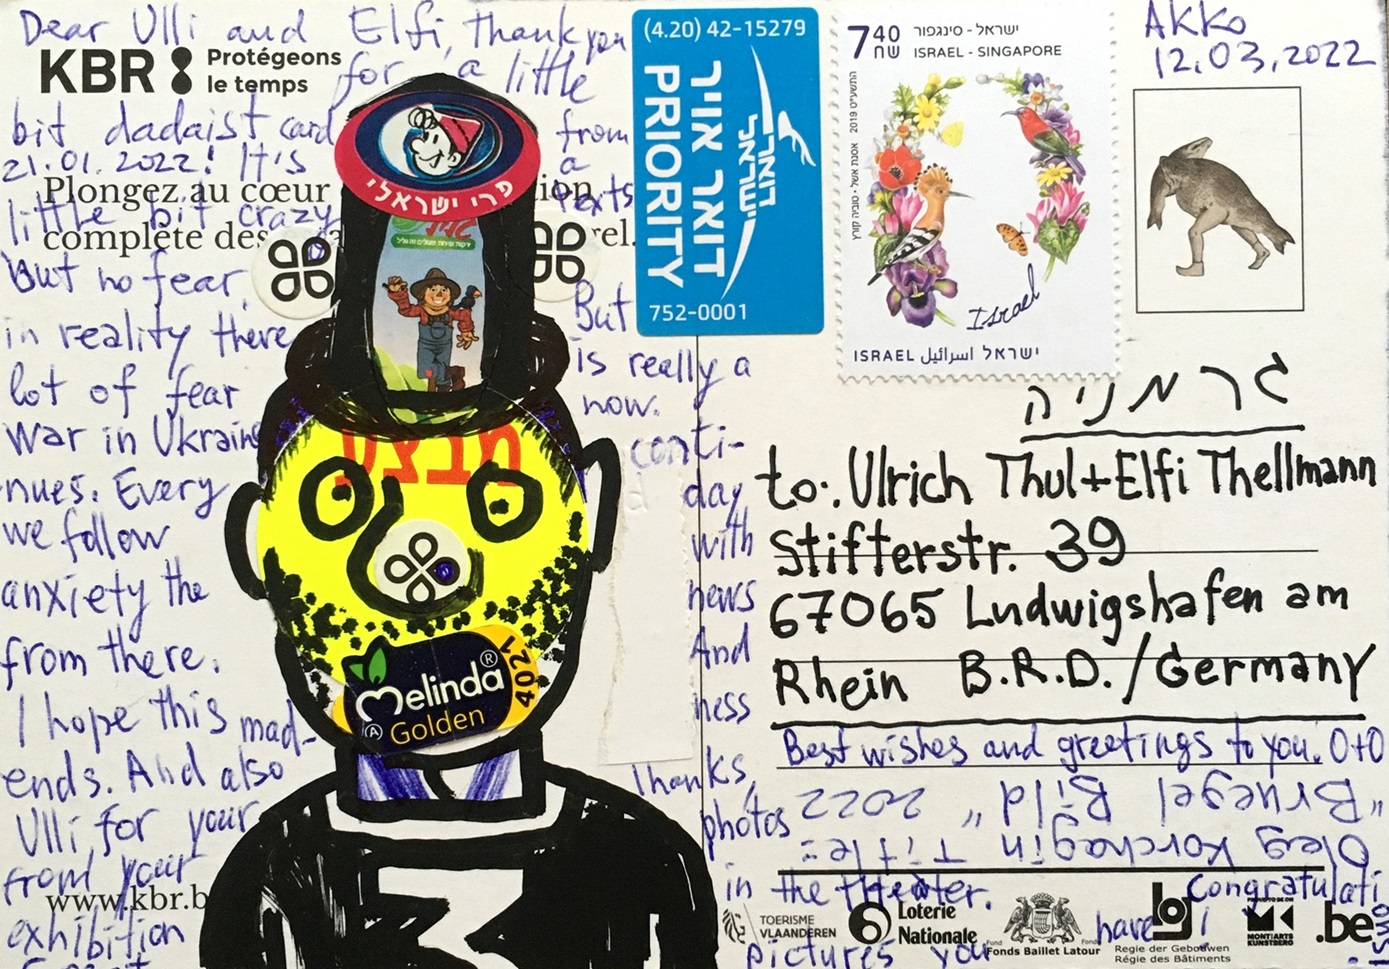 Dear Ulli and Elfi, thank you
for a little
bit dadaist card from
21.01.2022! It's a
little bit crazy texts
But no fear, But
in reality there is really a
lot of fear now.
War in Ukraine conti-
nues. Every day
we follow with
anxiety the news
from there. And
I hope this mad- ness
ends. And also thanks,
Ulli, for your photos
from your in the theater.
exhibition pictures you have
Congratulati
ons!
KBR Protégeons
le temps
Plongez au cœur
complète des rel.
www.kbr.b
פרי ישראלי
מבצע
Melinda®
Golden
4021
(4.20) 42-15279
דואר אויר
PRIORITY
דואר ישראל
752-0001
7.40
שח
ישראל - סינגפור
ISRAEL - SINGAPORE
2019
Israel
ISRAEL اسرائيل ישראל
AKKO
12.03.2022
גרמניה
to: Ulrich Thul + Elfi Thellmann
Stifterstr. 39
67065 Ludwigshafen am
Rhein B.R.D./Germany
Best wishes and greetings to you. O+O
Oleg Korchagin Title:
"Bruegel Bild" 2022
TOERISME
VLAANDEREN
Loterie
Nationale
Fonds Baillet Latour
Regie der Gebouwen
Régie des Bâtiments
MONT ARTS
KUNSTBERG
.be